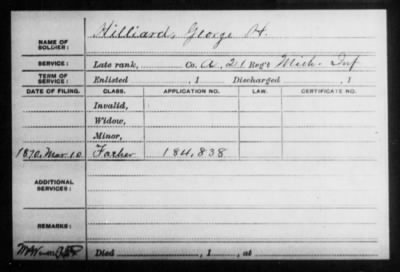 NAME OF SOLDIER: Hilliard, George H.
SERVICE: Late rank, Co. A, 21 Reg't Mich. Inf
TERM OF SERVICE: Enlisted , 1 Discharged , 1
DATE OF FILING. CLASS. APPLICATION NO. LAW. CERTIFICATE NO.
Invalid,
Widow,
Minor,
1870, Mar. 10 Father 184,838
ADDITIONAL SERVICES:
REMARKS:
Died , 1 , at